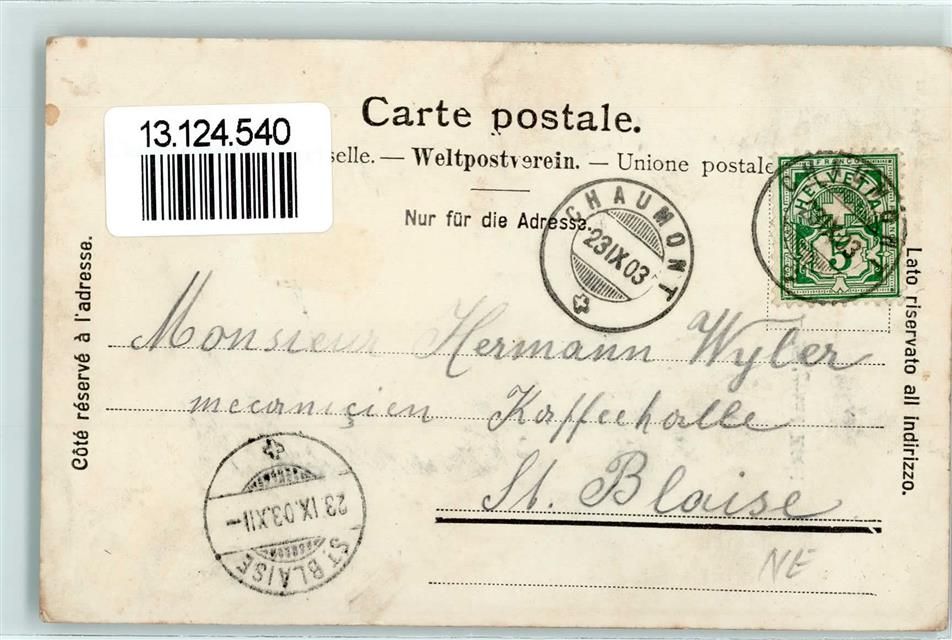 13.124.540
Carte postale.
selle. — Weltpostverein. — Unione postale
Nur für die Adresse.
CHAUMONT
23 IX 03
FRANCO
HELVETIA
5
CHAUMONT
23 IX 03
Côté réservé à l'adresse.
Lato riservato all indirizzo.
Monsieur Hermann Wyler
mecanicien Kaffeehalle
St. Blaise
NE
23 IX.03.XII–
ST BLAISE